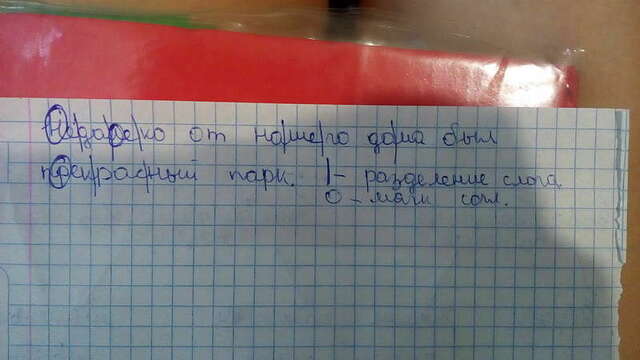 Недалеко от нашего дома был
прекрасный парк. |- разделение слога
О - мягк согл.